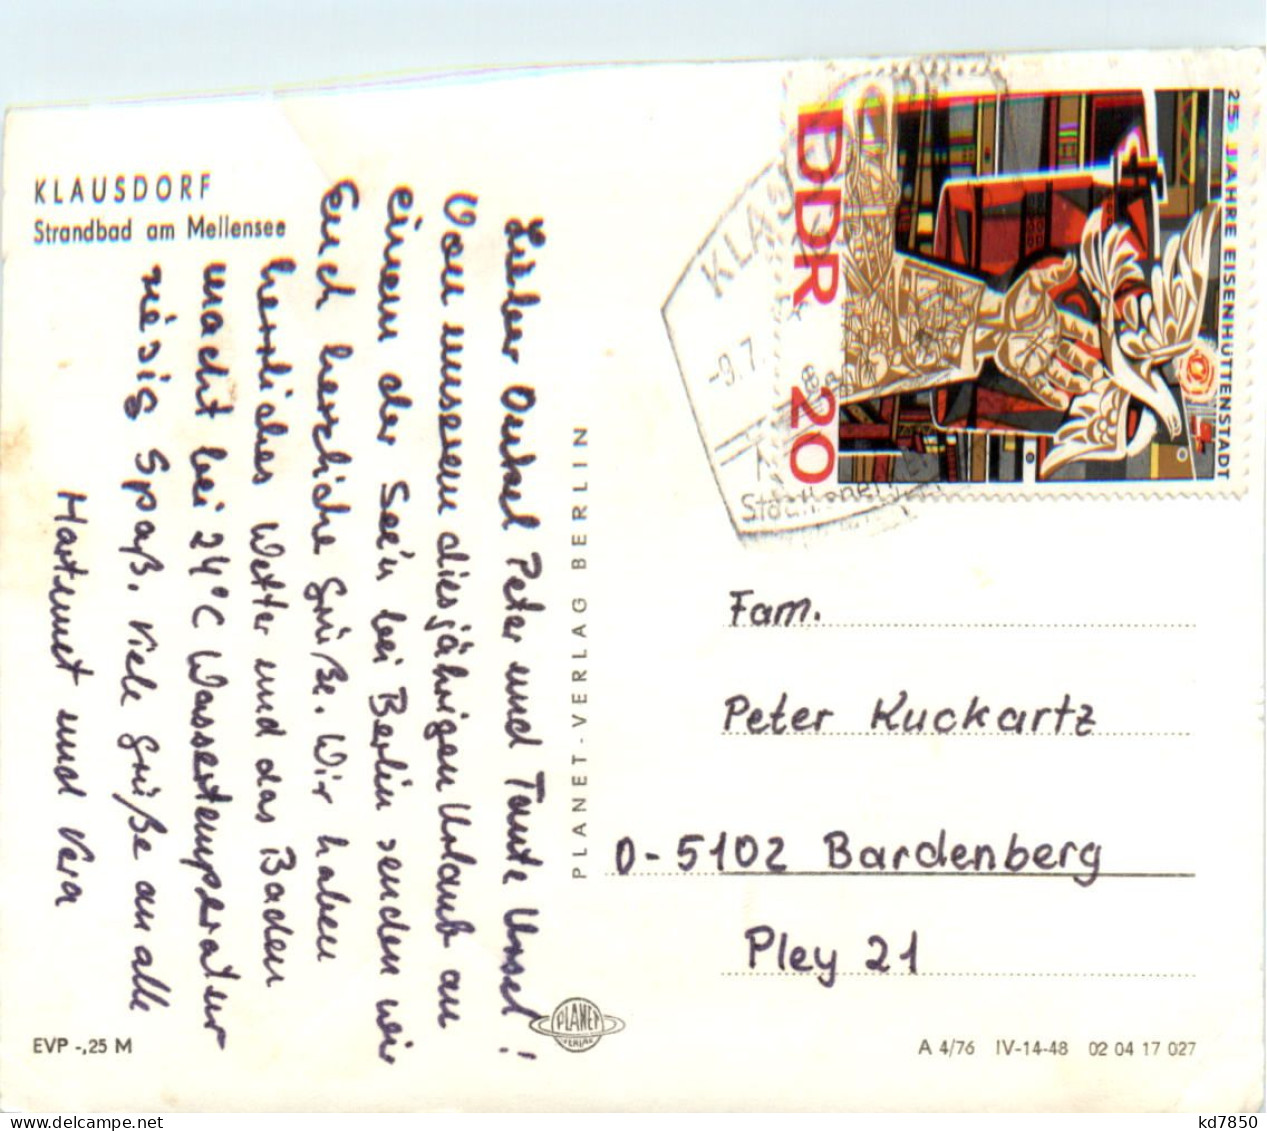 KLAUSDORF
Strandbad am Mellensee
Lieber Onkel Peter und Tante Ursel!
Von unserem diesjährigen Urlaub an
einem der See'n bei Berlin senden wir
Euch herrliche Grüße. Wir haben
herrliches Wetter und das Baden
macht bei 24°C Wassertemperatur
riesig Spaß. Viele Grüße an alle
Hartmut und Vera
PLANET-VERLAG BERLIN
25 JAHRE EISENHÜTTENSTADT
DDR 20
-9.7.
Fam.
Peter Kuckartz
D-5102 Bardenberg
Pley 21
PLANET
VERLAG
EVP -,25 M
A 4/76 IV-14-48 02 04 17 027
delcampe.net
kd7850